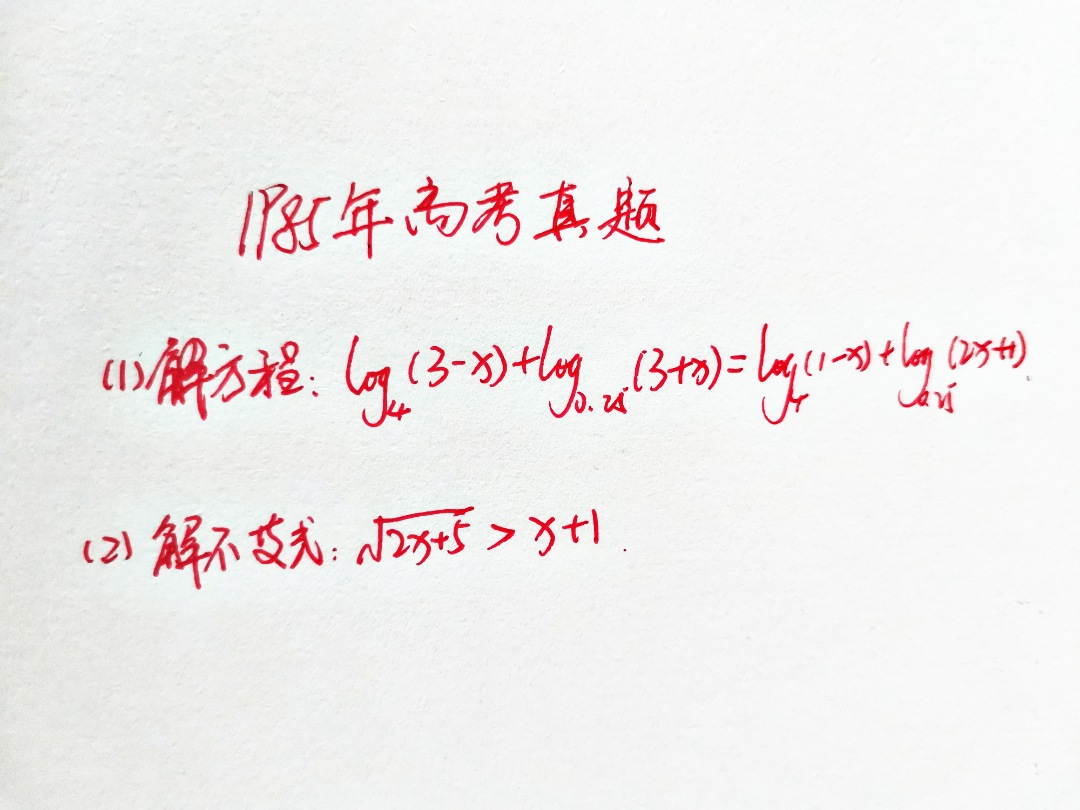 1985年高考真题
(1)解方程: log₄(3-x)+log₀.₂₅(3+x)=log₄(1-x)+log₀.₂₅(2x+1)
(2) 解不等式: √(2x+5) > x+1.